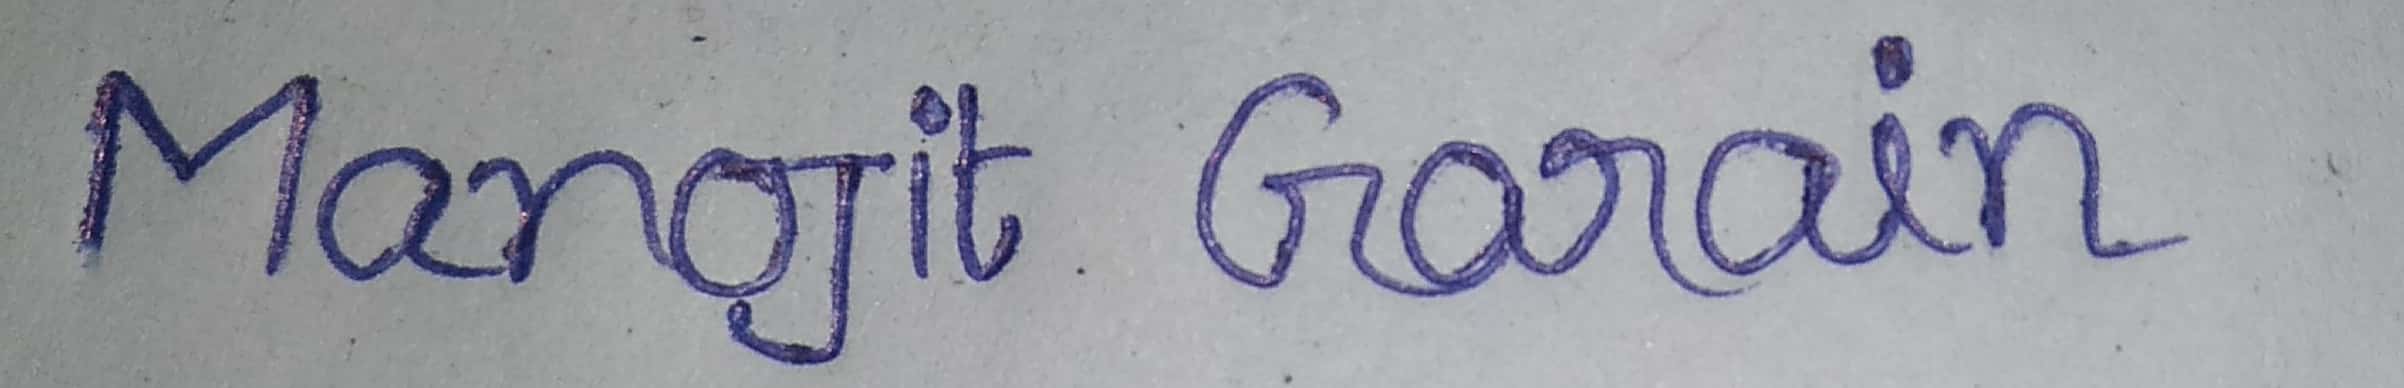 Manojit Garain